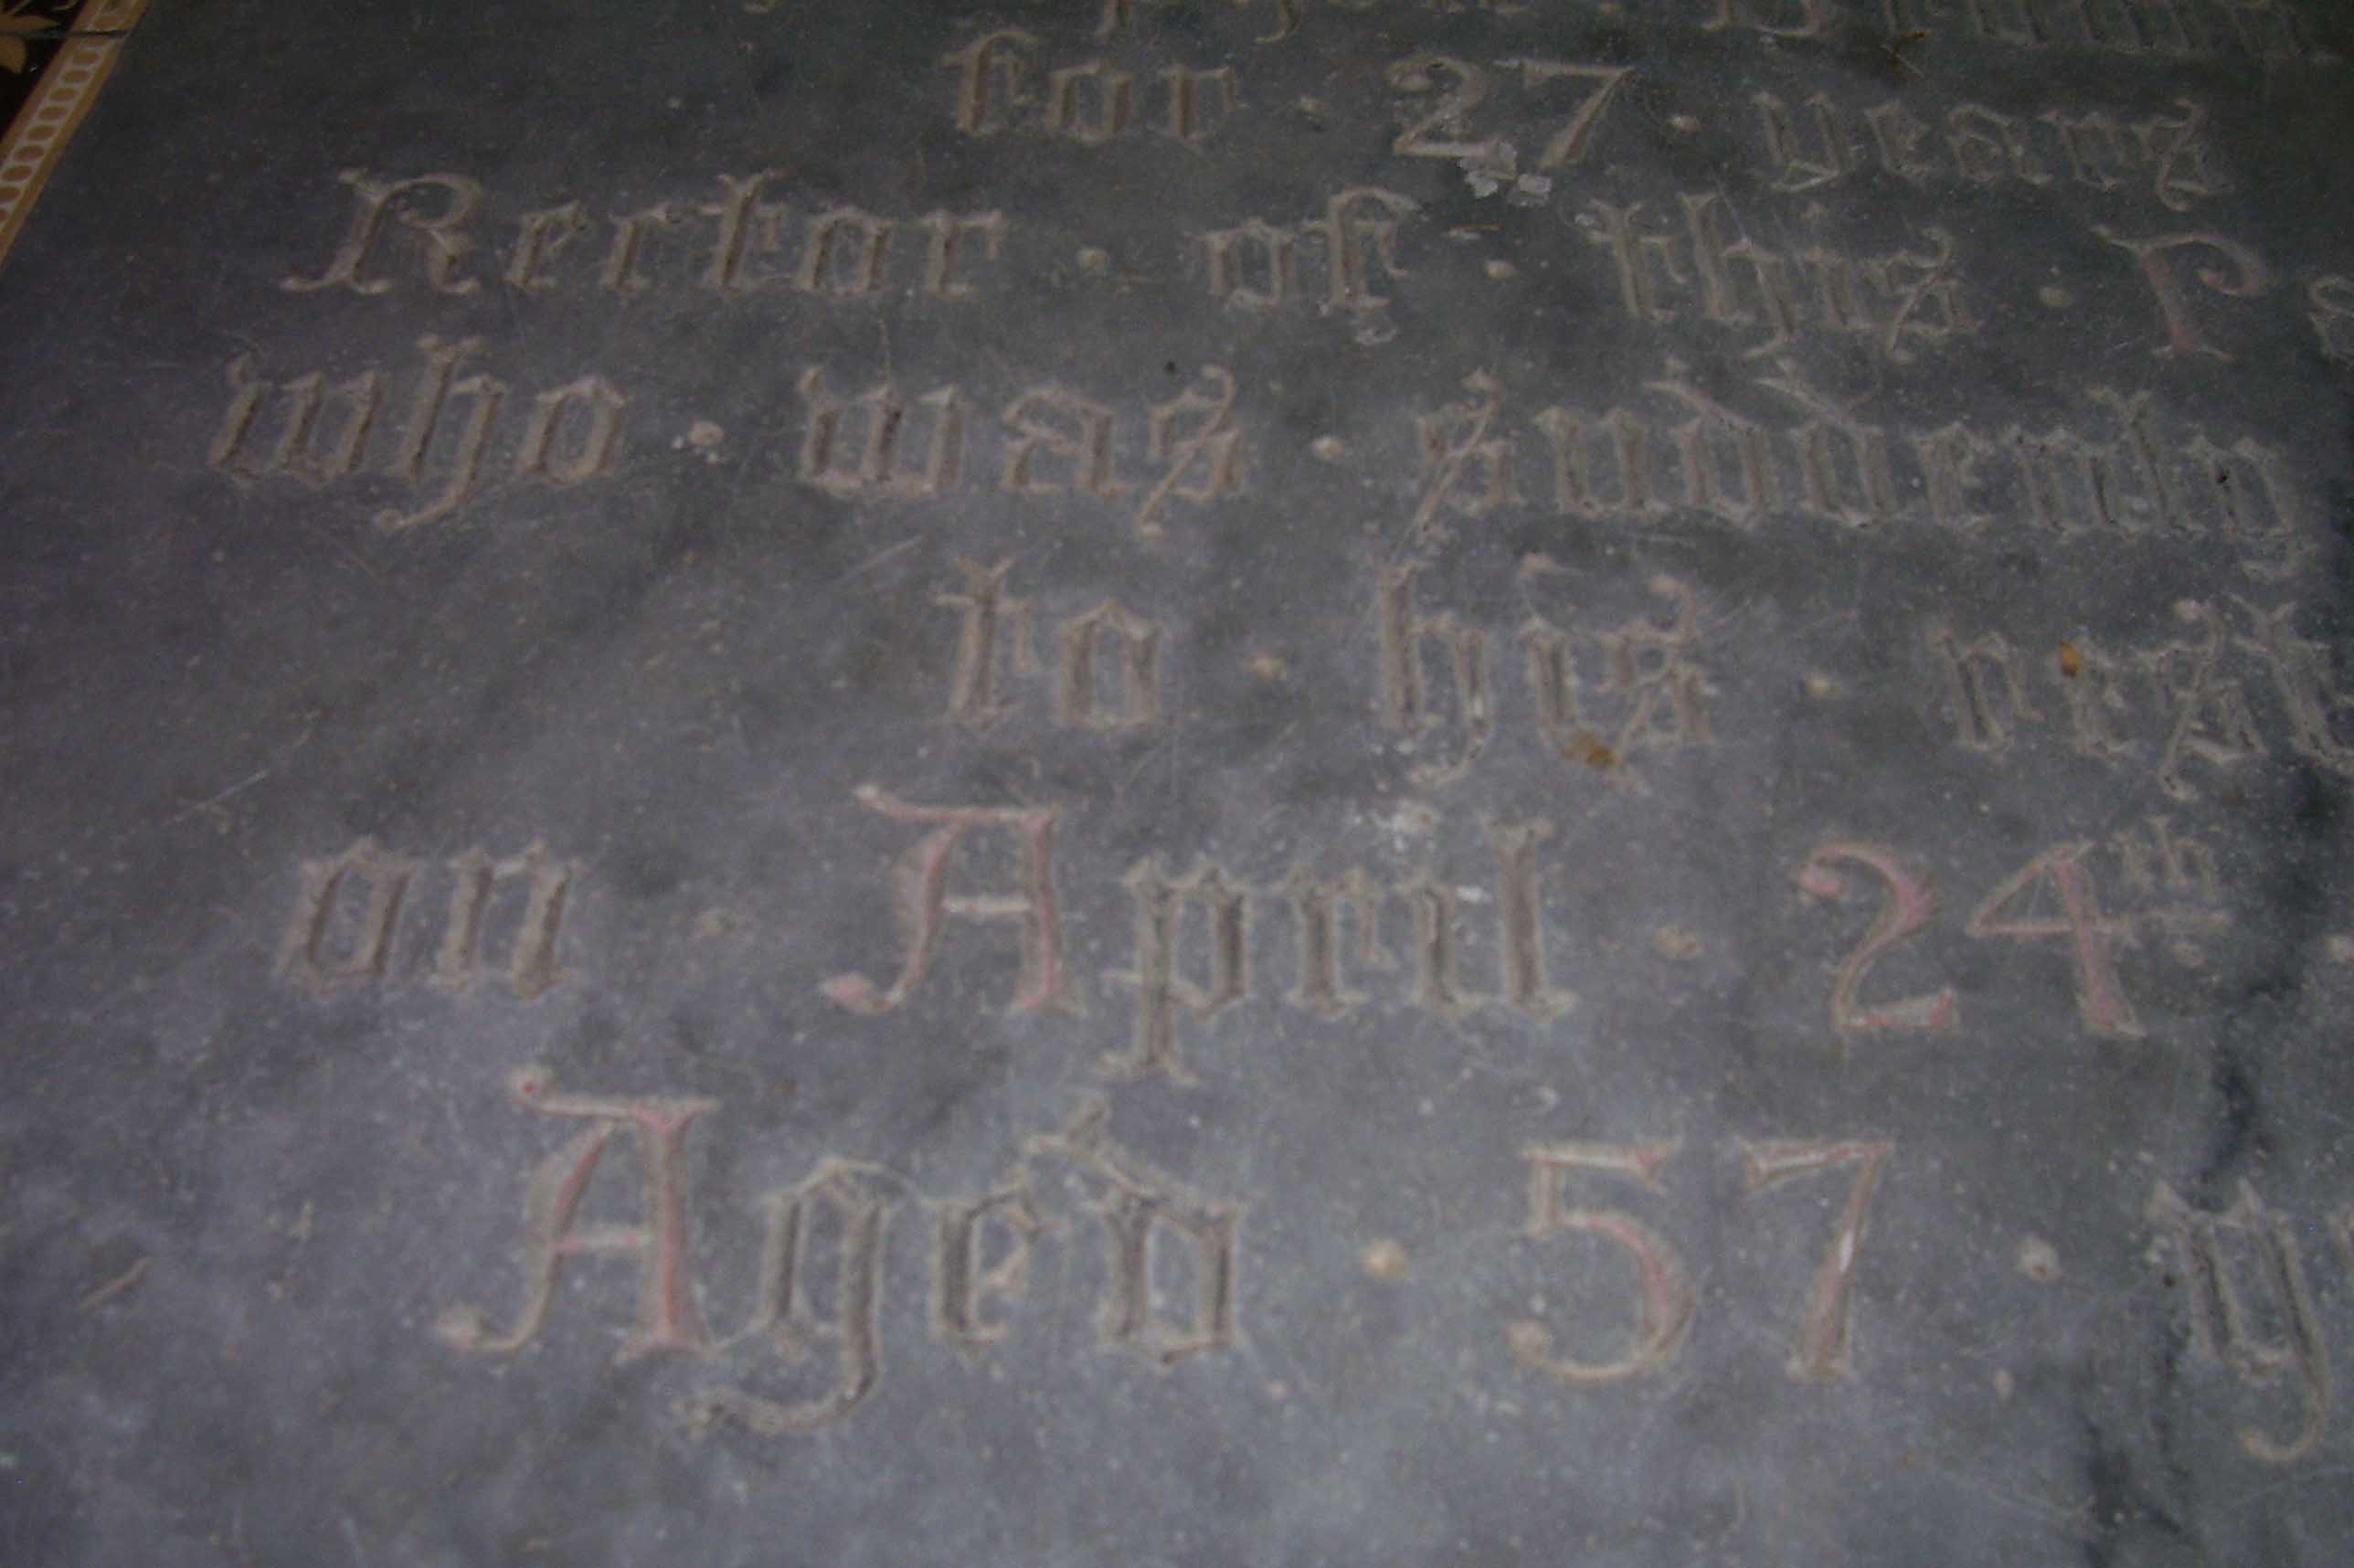 for · 27 · years
Rector · of · this · P
who · was · suddenly
to · his · rest
on · April · 24th ·
Aged · 57 · y